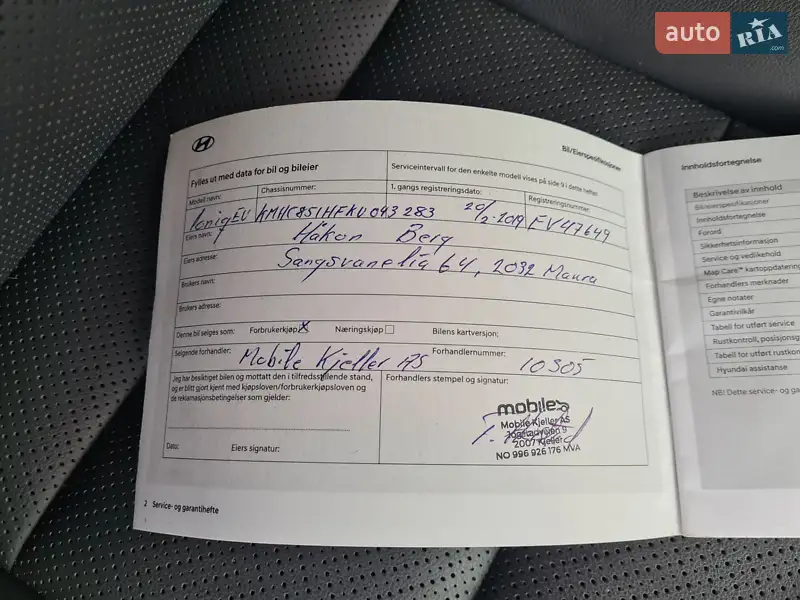 auto RIA .com
Bil/Eierspesifikasjoner
Fylles ut med data for bil og bileier
Serviceintervall for den enkelte modell vises på side 9 i dette heftet
Modell navn:
Chassisnummer:
1. gangs registreringsdato:
Registreringsnummer:
Ioniq EV
KMHC851HFKU093283
20/2-2019
EV47649
Eiers navn:
Håkon Berg
Eiers adresse:
Sangsvanelia 64, 2032 Maura
Brukers navn:
Brukers adresse:
Denne bil selges som:
Forbrukerkjøp X
Næringskjøp
Bilens kartversjon:
Selgende forhandler:
Mobile Kjeller AS
Forhandlernummer:
10305
Jeg har besiktiget bilen og mottatt den i tilfredsstillende stand,
og er blitt gjort kjent med kjøpsloven/forbrukerkjøpsloven og
de reklamasjonsbetingelser som gjelder:
Forhandlers stempel og signatur:
mobile
Mobile Kjeller AS
2007 Kjeller
NO 996 926 176 MVA
Dato:
Eiers signatur:
2 Service- og garantihefte
Innholdsfortegnelse
Beskrivelse av innhold
Bil/eierspesifikasjoner
Innholdsfortegnelse
Forord
Sikkerhetsinformasjon
Service og vedlikehold
Map Care™ kartoppdatering
Forhandlers merknader
Egne notater
Garantivilkår
Tabell for utført service
Rustkontroll, posisjonsg
Tabell for utført rustkon
Hyundai assistanse
NB! Dette service- og ga